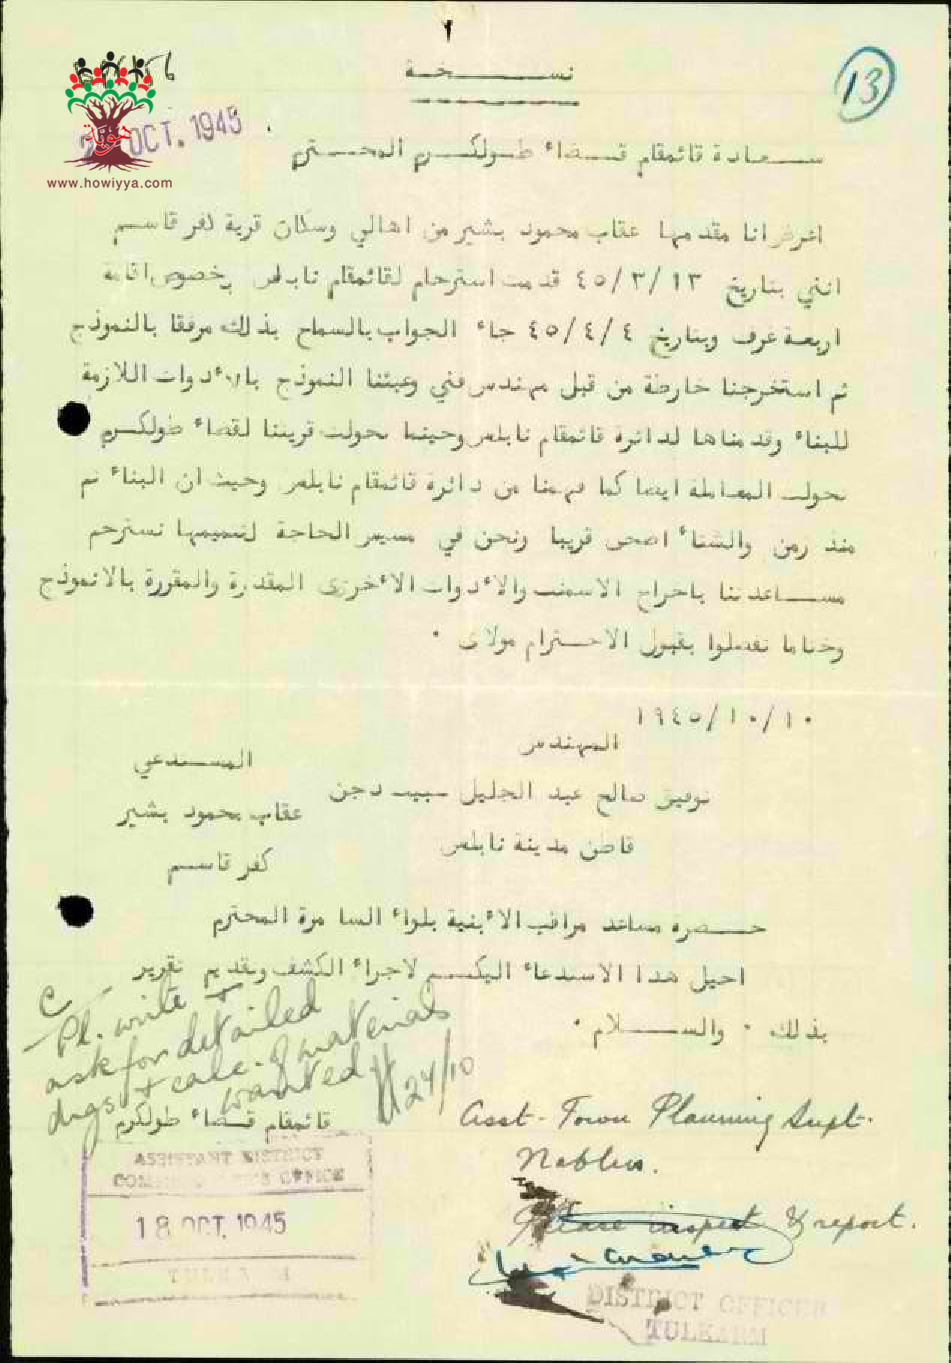 نسخة
13
OCT. 1945
هوية
www.howiyya.com
سعادة قائمقام قضاء طولكرم المحترم
اعرض انا مقدمها عقاب محمود بشير من اهالي وسكان قرية كفر قاسم
انني بتاريخ ٤٥/٣/١٣ قدمت استرحام لقائمقام نابلس بخصوص اقامة
اربعة غرف وبتاريخ ٤٥/٤/٤ جاء الجواب بالسماح بذلك مرفقا بالنموذج
ثم استخرجنا خارطة من قبل مهندس فني وعبئنا النموذج بالأدوات اللازمة
للبناء وقدمناها لدائرة قائمقام نابلس وحينما تحولت قريتنا لقضاء طولكرم
تحولت المعاملة ايضا كما فهمنا من دائرة قائمقام نابلس وحيث ان البناء تم
منذ زمن والشتاء اضحى قريبا ونحن في مسيس الحاجة لتتميمها نسترحم
مساعدتنا باخراج الاسمنت والأدوات الأخرى المقدرة والمقررة بالانموذج
وختاما تفضلوا بقبول الاحترام مولاي .
١٩٤٥/١٠/١٠
المهندس
المستدعي
توفيق صالح عبد الجليل بيت دجن
عقاب محمود بشير
قاطن مدينة نابلس
كفر قاسم
حضرة مساعد مراقب الأبنية بلواء السامرة المحترم
احيل هذا الاستدعاء اليكم لاجراء الكشف وتقديم تقرير
بذلك . والسلام .
Pl. write +
ask for detailed
dwgs + calc. of materials
wanted
24/10
قائمقام قضاء طولكرم
Asst. Town Planning Supt.
Nablus.
Please inspect & report.
ASSISTANT DISTRICT
COMMISSIONER'S OFFICE
18 OCT. 1945
TULKARM
DISTRICT OFFICER
TULKARM